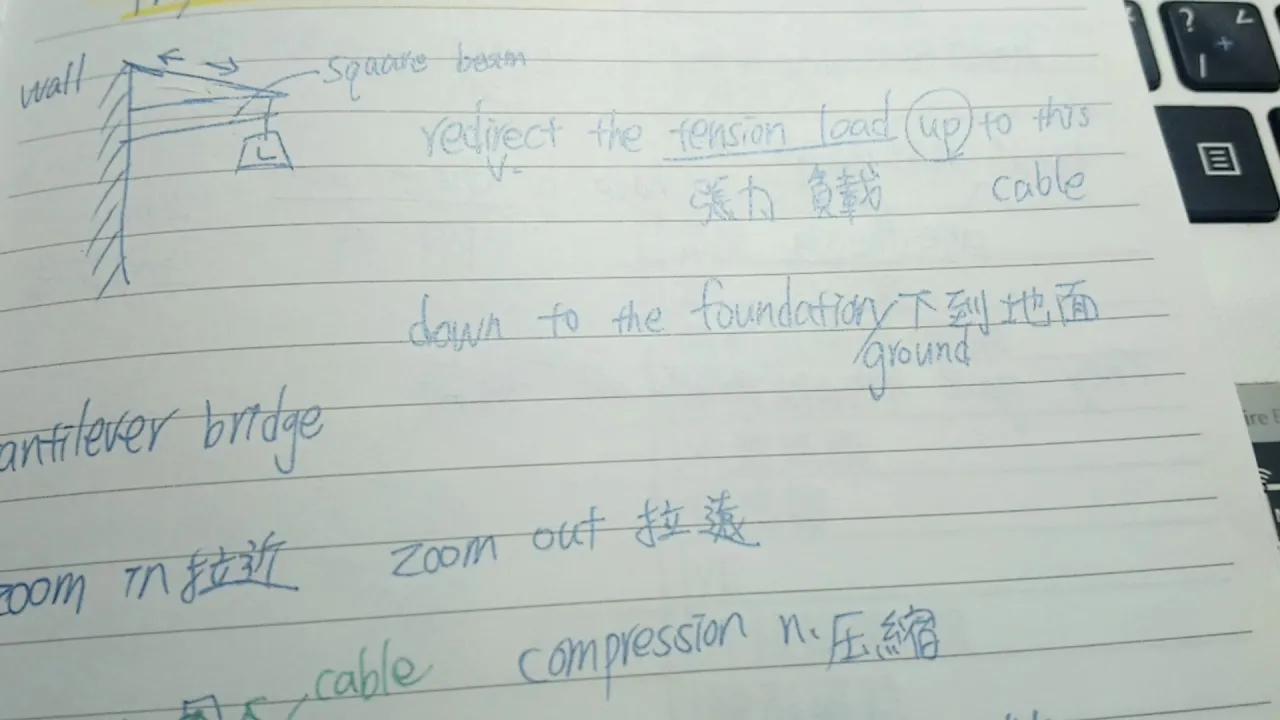 wall
square beam
redirect the tension load up to this
V.
張力 負載 cable
L
down to the foundation/下到地面
ground
antilever bridge
zoom in 拉近 zoom out 拉遠
cable
compression n. 压縮
?
ire